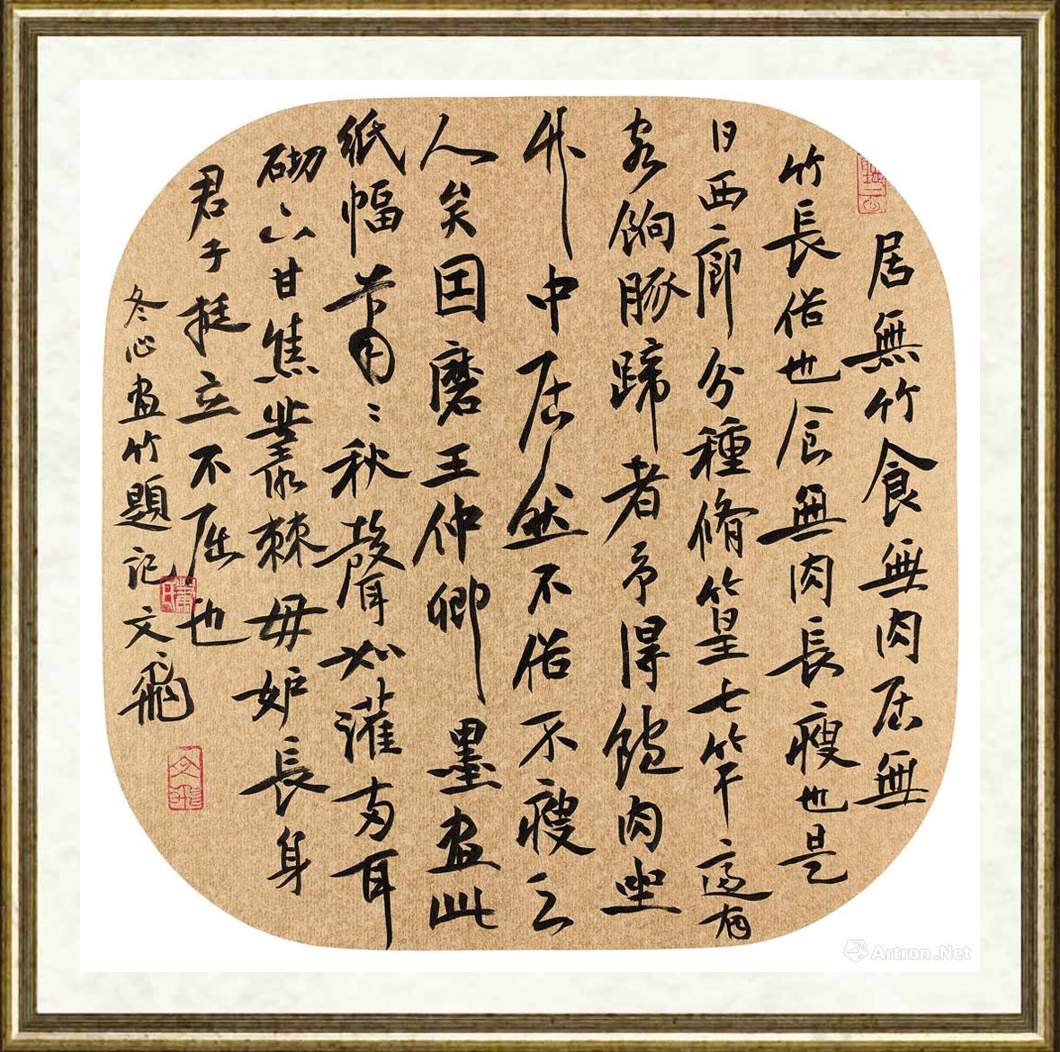 居無竹食無肉居無
竹長俗也食無肉長瘦也是
日西廊分種脩篁七竿適有
客餉豚蹄者予得飽肉坐
竹中居然不俗不瘦之
人矣因磨王仲卿墨畫此
紙幅葉葉秋聲如灌兩耳
砌下甘蕉叢棘毋妒長身
君子挺立不屈也
冬心畫竹題記文飛
Artron.Net